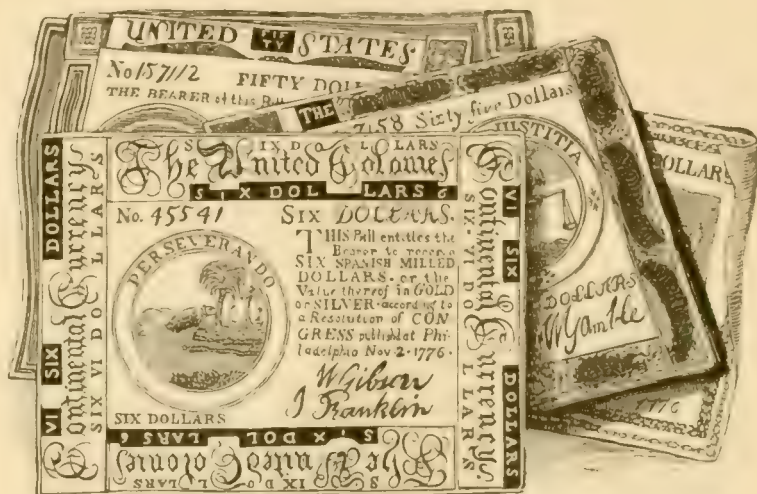 UNITED FIFTY STATES
No 157112 FIFTY
THE BEARER of this Bill
THE
7158 Sixty five Dollars
JUSTITIA
DOLLARS
WGamble
DOLLARS
1776
SIX DOLLARS
The United Colonies
SIX DOLLARS
No. 45541 SIX DOLLARS.
PERSEVERANDO
THIS Bill entitles the
Bearer to receive
SIX SPANISH MILLED
DOLLARS, or the
Value thereof in GOLD
or SILVER, according to
a Resolution of CON
GRESS published at Phi-
ladelphia Nov. 2. 1776.
WGibson
J Franklin
SIX DOLLARS
VI SIX DOLLARS
Continental Currency
SIX VI DOLLARS
Continental Currency
SIX VI DOLLARS
VI SIX DOLLARS
SIX DOLLARS
The United Colonies
SIX DOLLARS